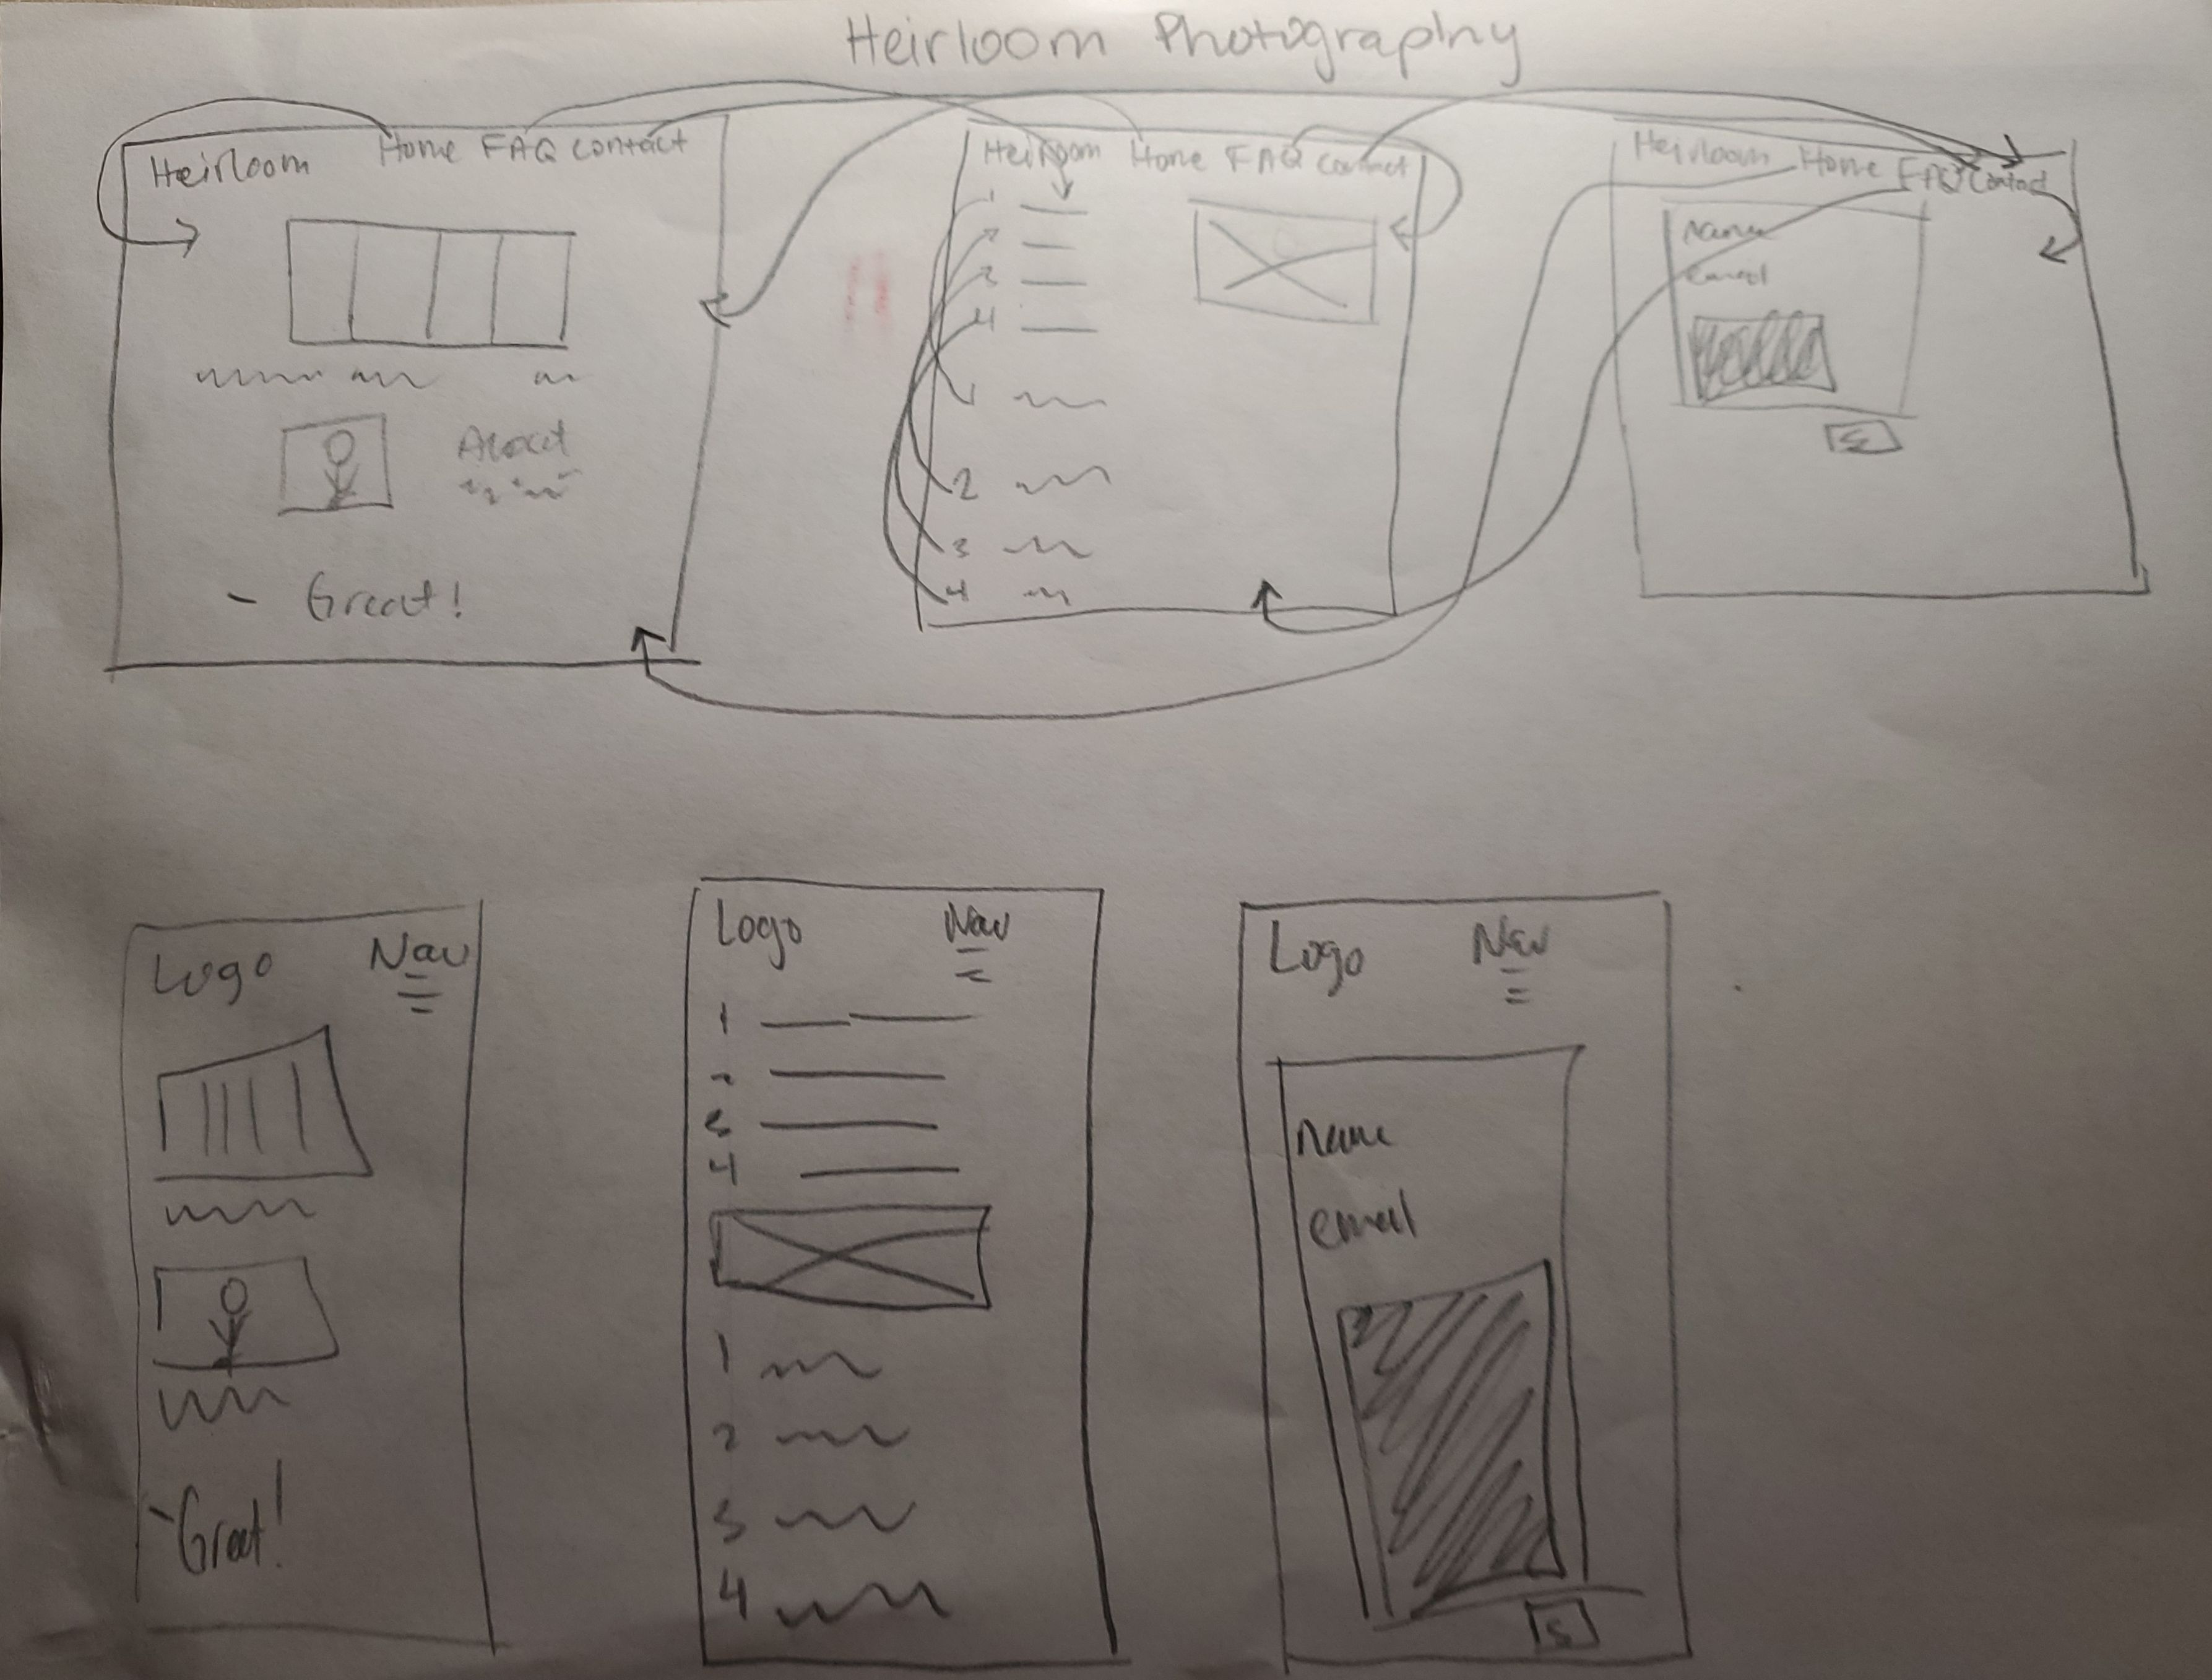 Heirloom Photography
Heirloom Home FAQ contact
About
- Great!
Heirloom Home FAQ contact
1
2
3
4
1
2
3
4
Heirloom Home FAQ contact
Name
email
S
Logo Nav
-Great!
Logo Nav
1
2
3
4
1
2
3
4
Logo Nav
Name
email
S